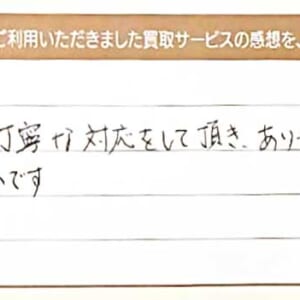 ご利用いただきました買取サービスの感想を、
丁寧な対応をして頂き、あり
です